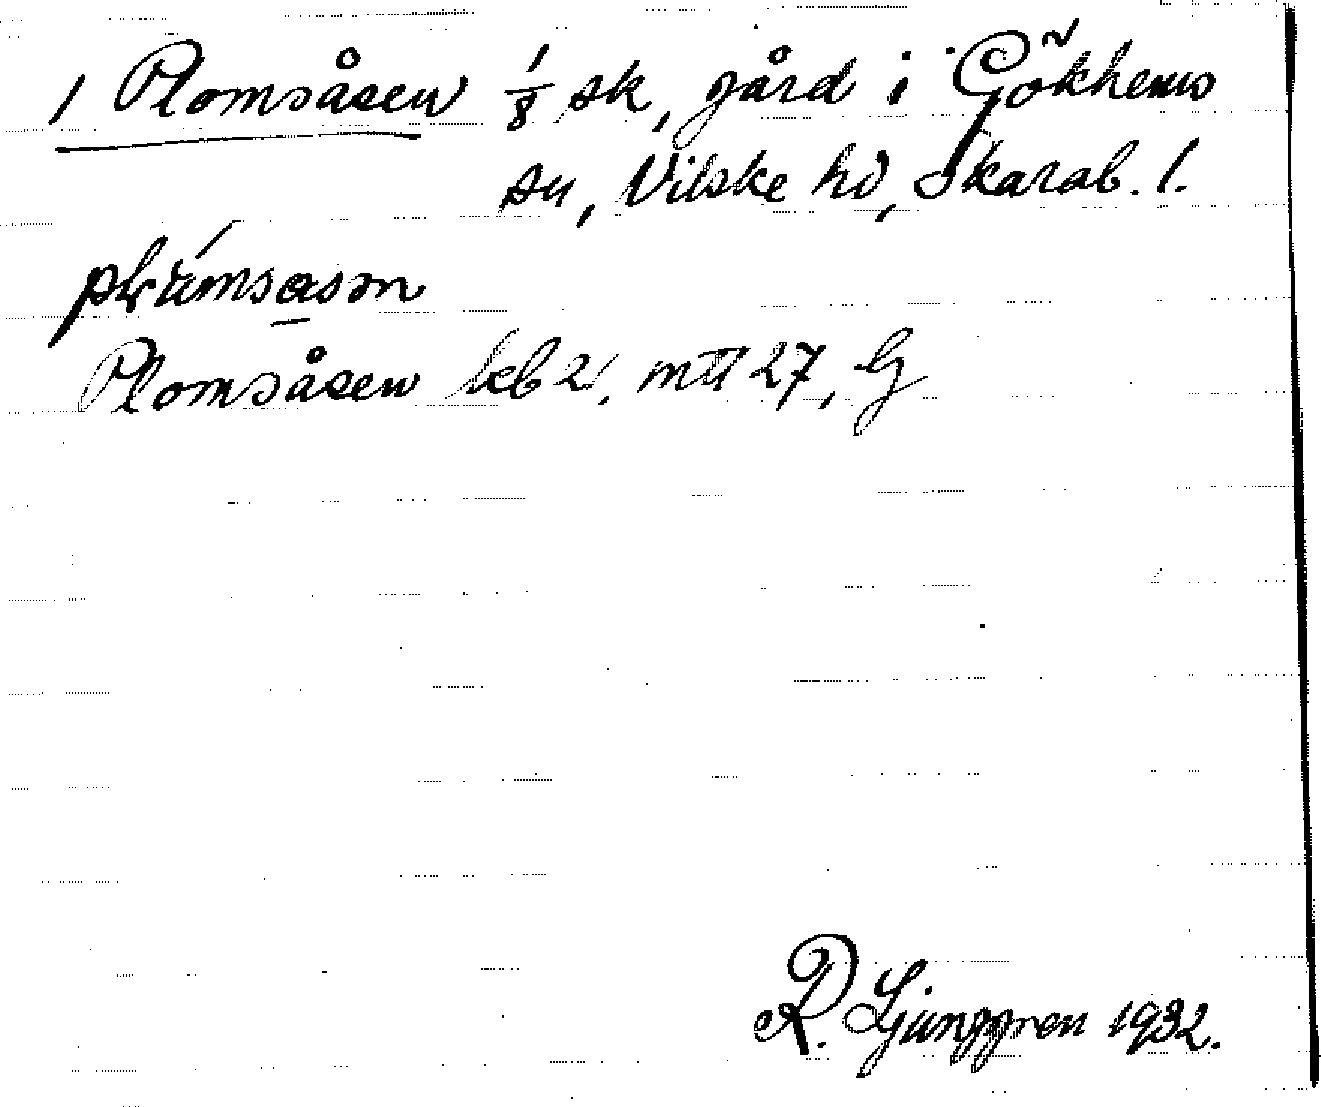 1 Plomsåsen 1/8 sk, gård i Gökhems
sn, Vilske hd, Skarab. l.
Plomsåsen kb 2, mtl 27, G
R. Ljunggren 1932.